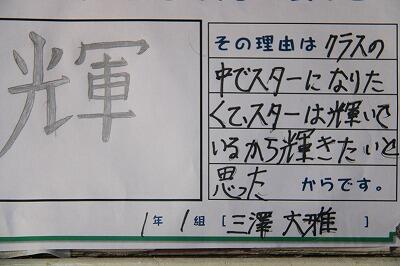 輝
その理由は クラスの
中でスターになりた
くて、スターは輝いで
いるから輝きたいと
思った からです。
1年 1組 [三澤 大雅]